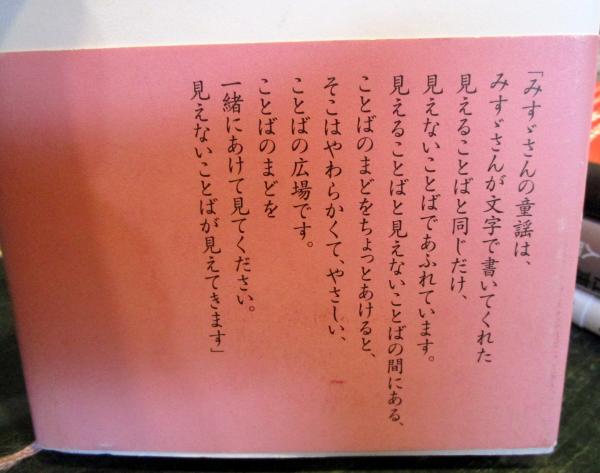 「みすゞさんの童謡は、
みすゞさんが文字で書いてくれた
見えることばと同じだけ、
見えないことばであふれています。
見えることばと見えないことばの間にある、
ことばのまどをちょっとあけると、
そこはやわらかくて、やさしい、
ことばの広場です。
ことばのまどを
一緒にあけて見てください。
見えないことばが見えてきます」